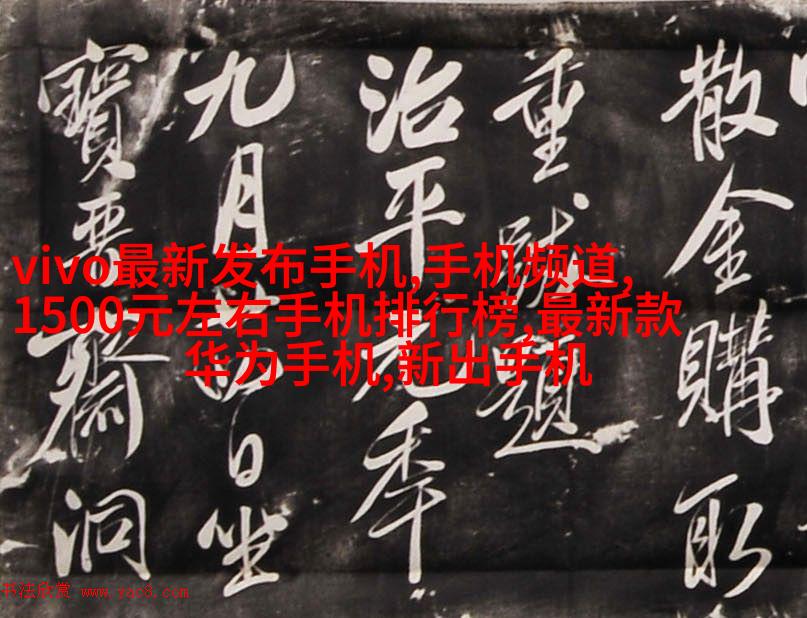 散金購取
重跋題
治平元季
九月日坐
寶齋洞
vivo最新发布手机,手机频道,
1500元左右手机排行榜,最新款
华为手机,新出手机
书法欣赏 www.yac8.com